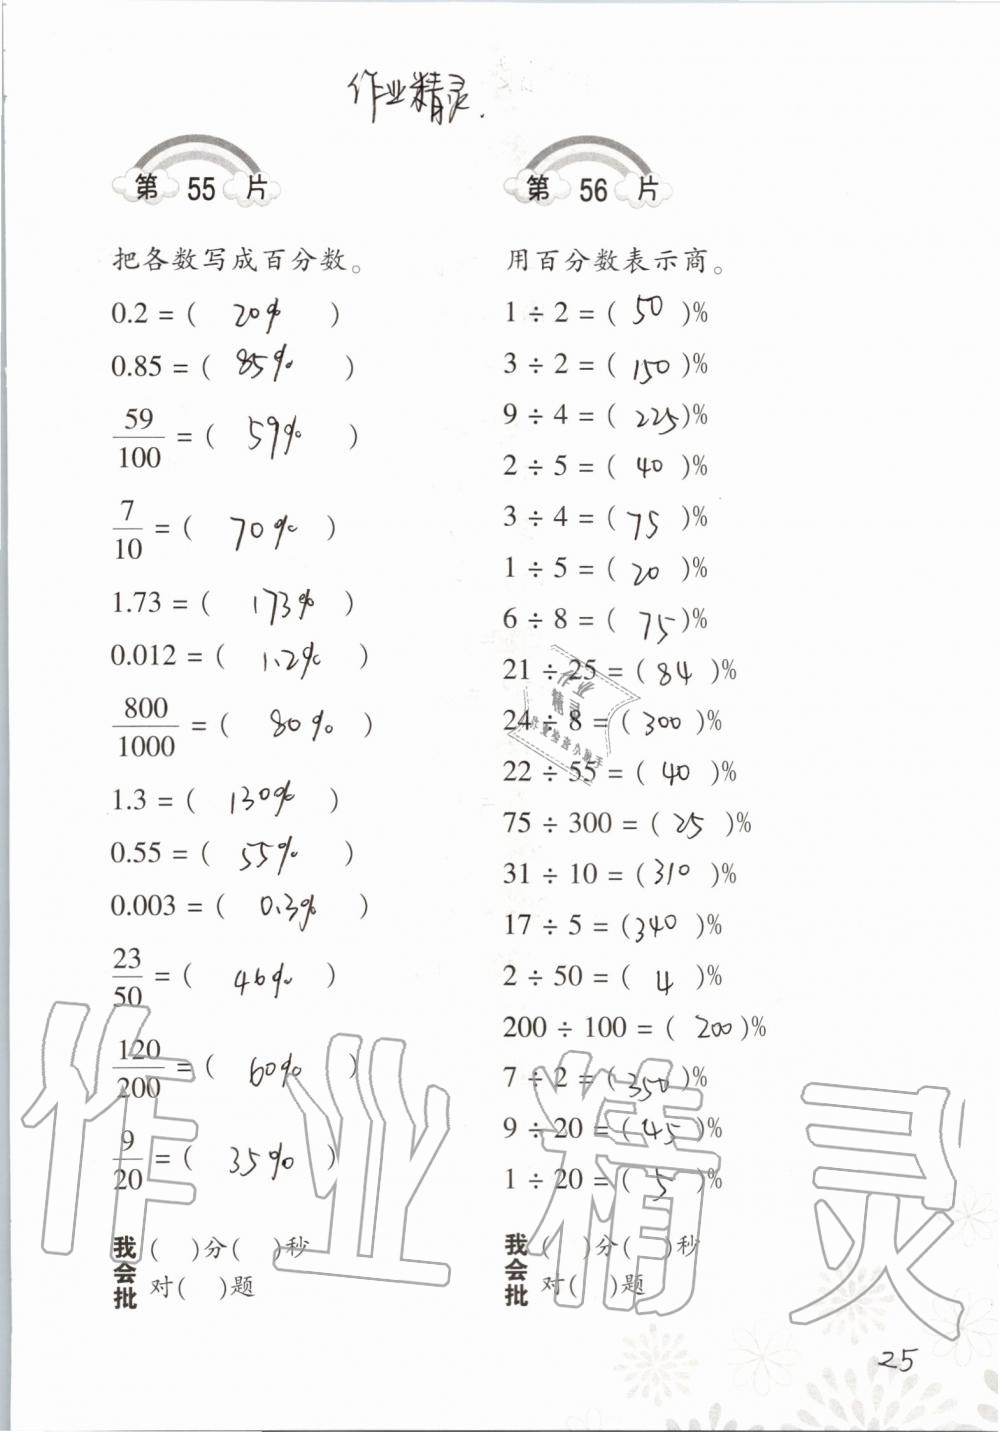 作业精灵.
第 55 片
把各数写成百分数。
0.2 = ( 20% )
0.85 = ( 85% )
59/100 = ( 59% )
7/10 = ( 70% )
1.73 = ( 173% )
0.012 = ( 1.2% )
800/1000 = ( 80% )
1.3 = ( 130% )
0.55 = ( 55% )
0.003 = ( 0.3% )
23/50 = ( 46% )
120/200 = ( 60% )
9/20 = ( 35% )
我会批 ( )分( )秒
对( )题
第 56 片
用百分数表示商。
1 ÷ 2 = ( 50 )%
3 ÷ 2 = ( 150 )%
9 ÷ 4 = ( 225 )%
2 ÷ 5 = ( 40 )%
3 ÷ 4 = ( 75 )%
1 ÷ 5 = ( 20 )%
6 ÷ 8 = ( 75 )%
21 ÷ 25 = ( 84 )%
24 ÷ 8 = ( 300 )%
22 ÷ 55 = ( 40 )%
75 ÷ 300 = ( 25 )%
31 ÷ 10 = ( 310 )%
17 ÷ 5 = ( 340 )%
2 ÷ 50 = ( 4 )%
200 ÷ 100 = ( 200 )%
7 ÷ 2 = ( 350 )%
9 ÷ 20 = ( 45 )%
1 ÷ 20 = ( 5 )%
我会批 ( )分( )秒
对( )题
作业
精灵
作业检查小助手
作业精灵
25